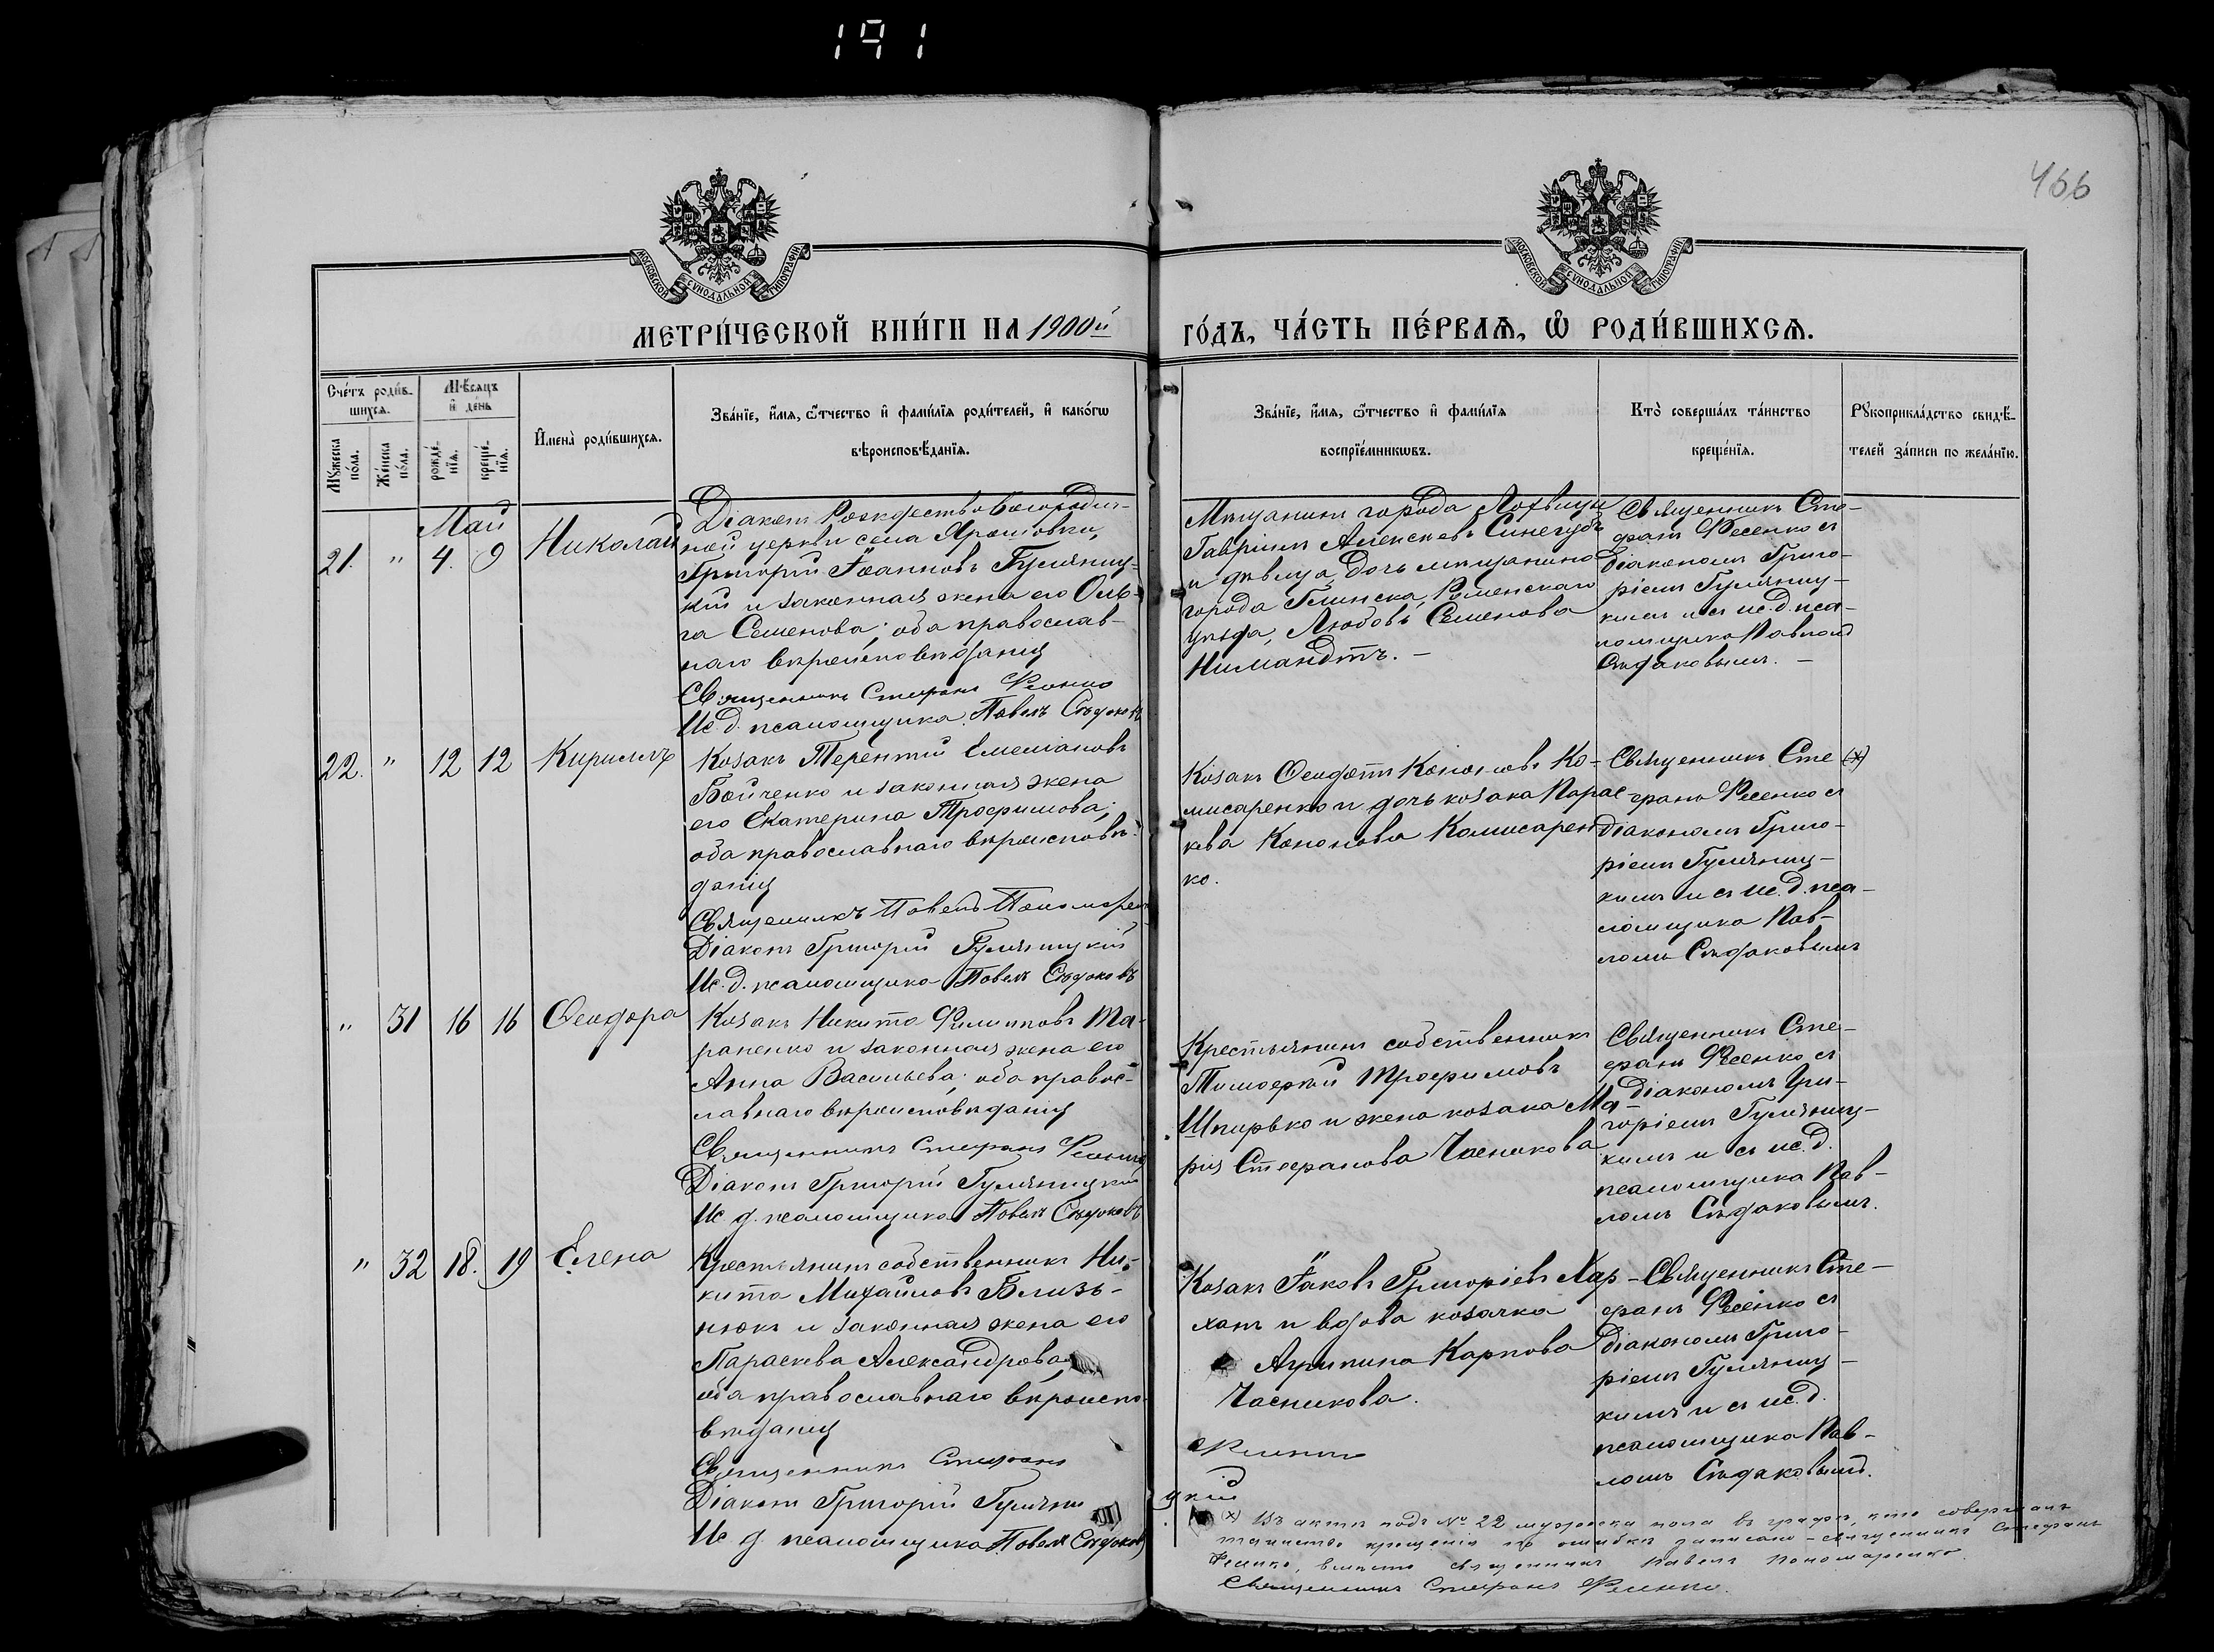 191
466
МОСКОВСКОЙ СѴНОДАЛЬНОЙ ТИПОГРАФІИ
МОСКОВСКОЙ СѴНОДАЛЬНОЙ ТИПОГРАФІИ
МЕТРИ́ЧЕСКОЙ КНИ́ГИ НА 1900й
ГО́ДЪ, ЧА́СТЬ ПЕ́РВАѦ, Ѽ РОДИ́ВШИХСѦ.
Сче́тъ роди́в-
шихсѧ.
Мꙋ́жеска
по́ла.
Же́нска
по́ла.
Мѣ́сяцъ
и҆ де́нь
рожде́-
нїѧ.
креще́-
нїѧ.
И҆мена̀ роди́вшихсѧ.
Зва́нїе, и҆́мѧ, ѻ҆́тчество и҆ фами́лїѧ роди́телей, и҆ како́гѡ
вѣроисповѣ́данїѧ.
Зва́нїе, и҆́мѧ, ѻ҆́тчество и҆ фами́лїѧ
воспрїе́мникѡвъ.
Кто̀ соверша́лъ та́инство
креще́нїѧ.
Рꙋкоприкла́дство свидѣ́-
телей за́писи по жела́нїю.
Май
21. " 4. 9 Николай
Діаконъ Рождество Богородич-
ной церкви села Ярошовки,
Григорій Іоанновъ Гуляниц-
кій и законная жена его Оль-
га Семенова; оба православ-
наго вѣроисповѣданія
Священникъ Стефанъ Фесенко
Ис. д. псаломщика Павелъ Съдаковъ
Мѣщанинъ города Лохвицы
Гавріилъ Алексѣевъ Синегубъ
и дѣвица дочь мѣщанина
города Глинска, Роменскаго
уѣзда, Любовь Семенова
Нимандтъ. –
Священникъ Сте-
фанъ Фесенко съ
діакономъ Григо-
ріемъ Гуляниц-
кимъ и съ ис. д. пса-
ломщика Павломъ
Сѣдаковымъ. –
22. " 12 12 Кириллъ
Козакъ Терентій Емеліановъ
Бойченко и законная жена
его Екатерина Трофимова;
оба православнаго вѣроисповѣ-
данія
Священникъ Павелъ Пономарен
Діаконъ Григорій Гуляницкій
Ис. д. псаломщика Павелъ Сѣдаковъ
Козакъ Ѳеодотъ Кононовъ Ко-
мисаренко и дочь козака Парас
кева Кононова Комисарен
ко.
Священникъ Сте (х)
фанъ Фесенко съ
діакономъ Григо-
ріемъ Гуляниц-
кимъ и съ ис. д. пса-
ломщика Пав-
ломъ Сѣдаковымъ
" 31 16 16 Ѳеодора
Козакъ Никита Филипповъ Та-
раненко и законная жена его
Анна Васильева; оба правос-
лавнаго вѣроисповѣданія
Священникъ Стефанъ Фесенко
Діаконъ Григорій Гуляницкій
Ис. д. псаломщика Павелъ Сѣдаковъ
Крестьянинъ собственникъ
Тимофей Трофимовъ
Шпирько и жена козака Ма-
рія Стефанова Часникова
Священникъ Сте-
фанъ Фесенко съ
діакономъ Гри-
горіемъ Гуляниц-
кимъ и съ ис. д.
псаломщика Пав-
ломъ Сѣдаковымъ.
" 32 18. 19 Елена
Крестьянинъ собственникъ Ни-
кита Михайловъ Близь-
нюкъ и законная жена его
Параскева Александрова
оба православнаго вѣроиспо-
вѣданія
Священникъ Стефанъ
Діаконъ Григорій Гуляни
Ис. д. псаломщика Павелъ Сѣдаковъ
Козакъ Іаковъ Григоріевъ Хар-
ланъ и вдова козачка
Агрипина Карпова
Часникова.
Фесенко
цкій
Священникъ Сте-
фанъ Фесенко съ
діакономъ Григо-
ріемъ Гуляниц-
кимъ и съ ис. д.
псаломщика Пав-
ломъ Сѣдаковымъ.
(х) Въ актѣ подъ № 22 мужеска пола въ графѣ, кто совершалъ
таинство крещенія по ошибкѣ записано – священникъ Стефанъ
Фесенко, вмѣсто священникъ Павелъ Пономаренко.
Священникъ Стефанъ Фесенко.